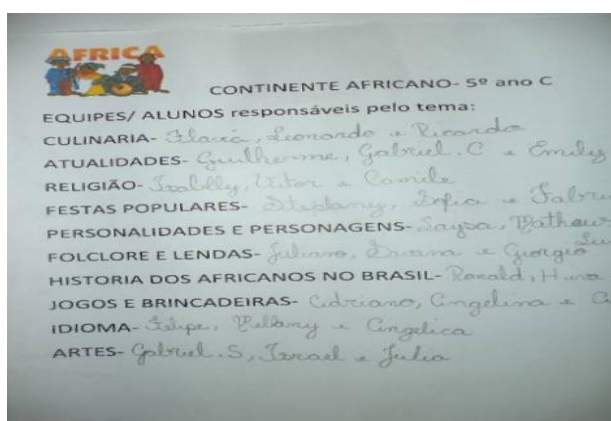 AFRICA
CONTINENTE AFRICANO- 5º ano C
EQUIPES/ ALUNOS responsáveis pelo tema:
CULINARIA- Flavia, Leonardo e Ricardo
ATUALIDADES- Guilherme, Gabriel.C e Emily
RELIGIÃO- Vitor e Camile
FESTAS POPULARES- Stephany, Sofia e
PERSONALIDADES E PERSONAGENS- Laysa,
FOLCLORE E LENDAS- Juliano, e Giorgio
HISTORIA DOS AFRICANOS NO BRASIL- Ronald,
JOGOS E BRINCADEIRAS- Adriano, Angelina e
IDIOMA- Felipe, e Angelica
ARTES- Gabriel.S, Israel e Julia